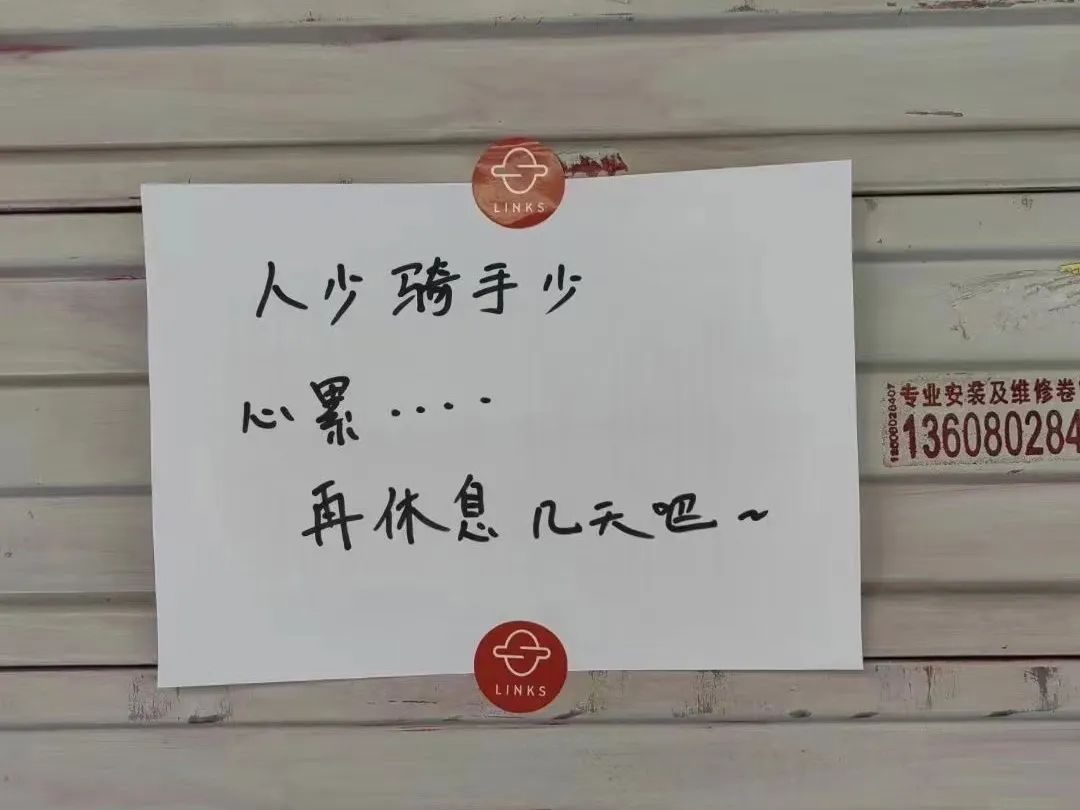 LINKS
人少 骑手少
心累····
再休息几天吧~
LINKS
专业安装及维修卷
136080284
13608028407